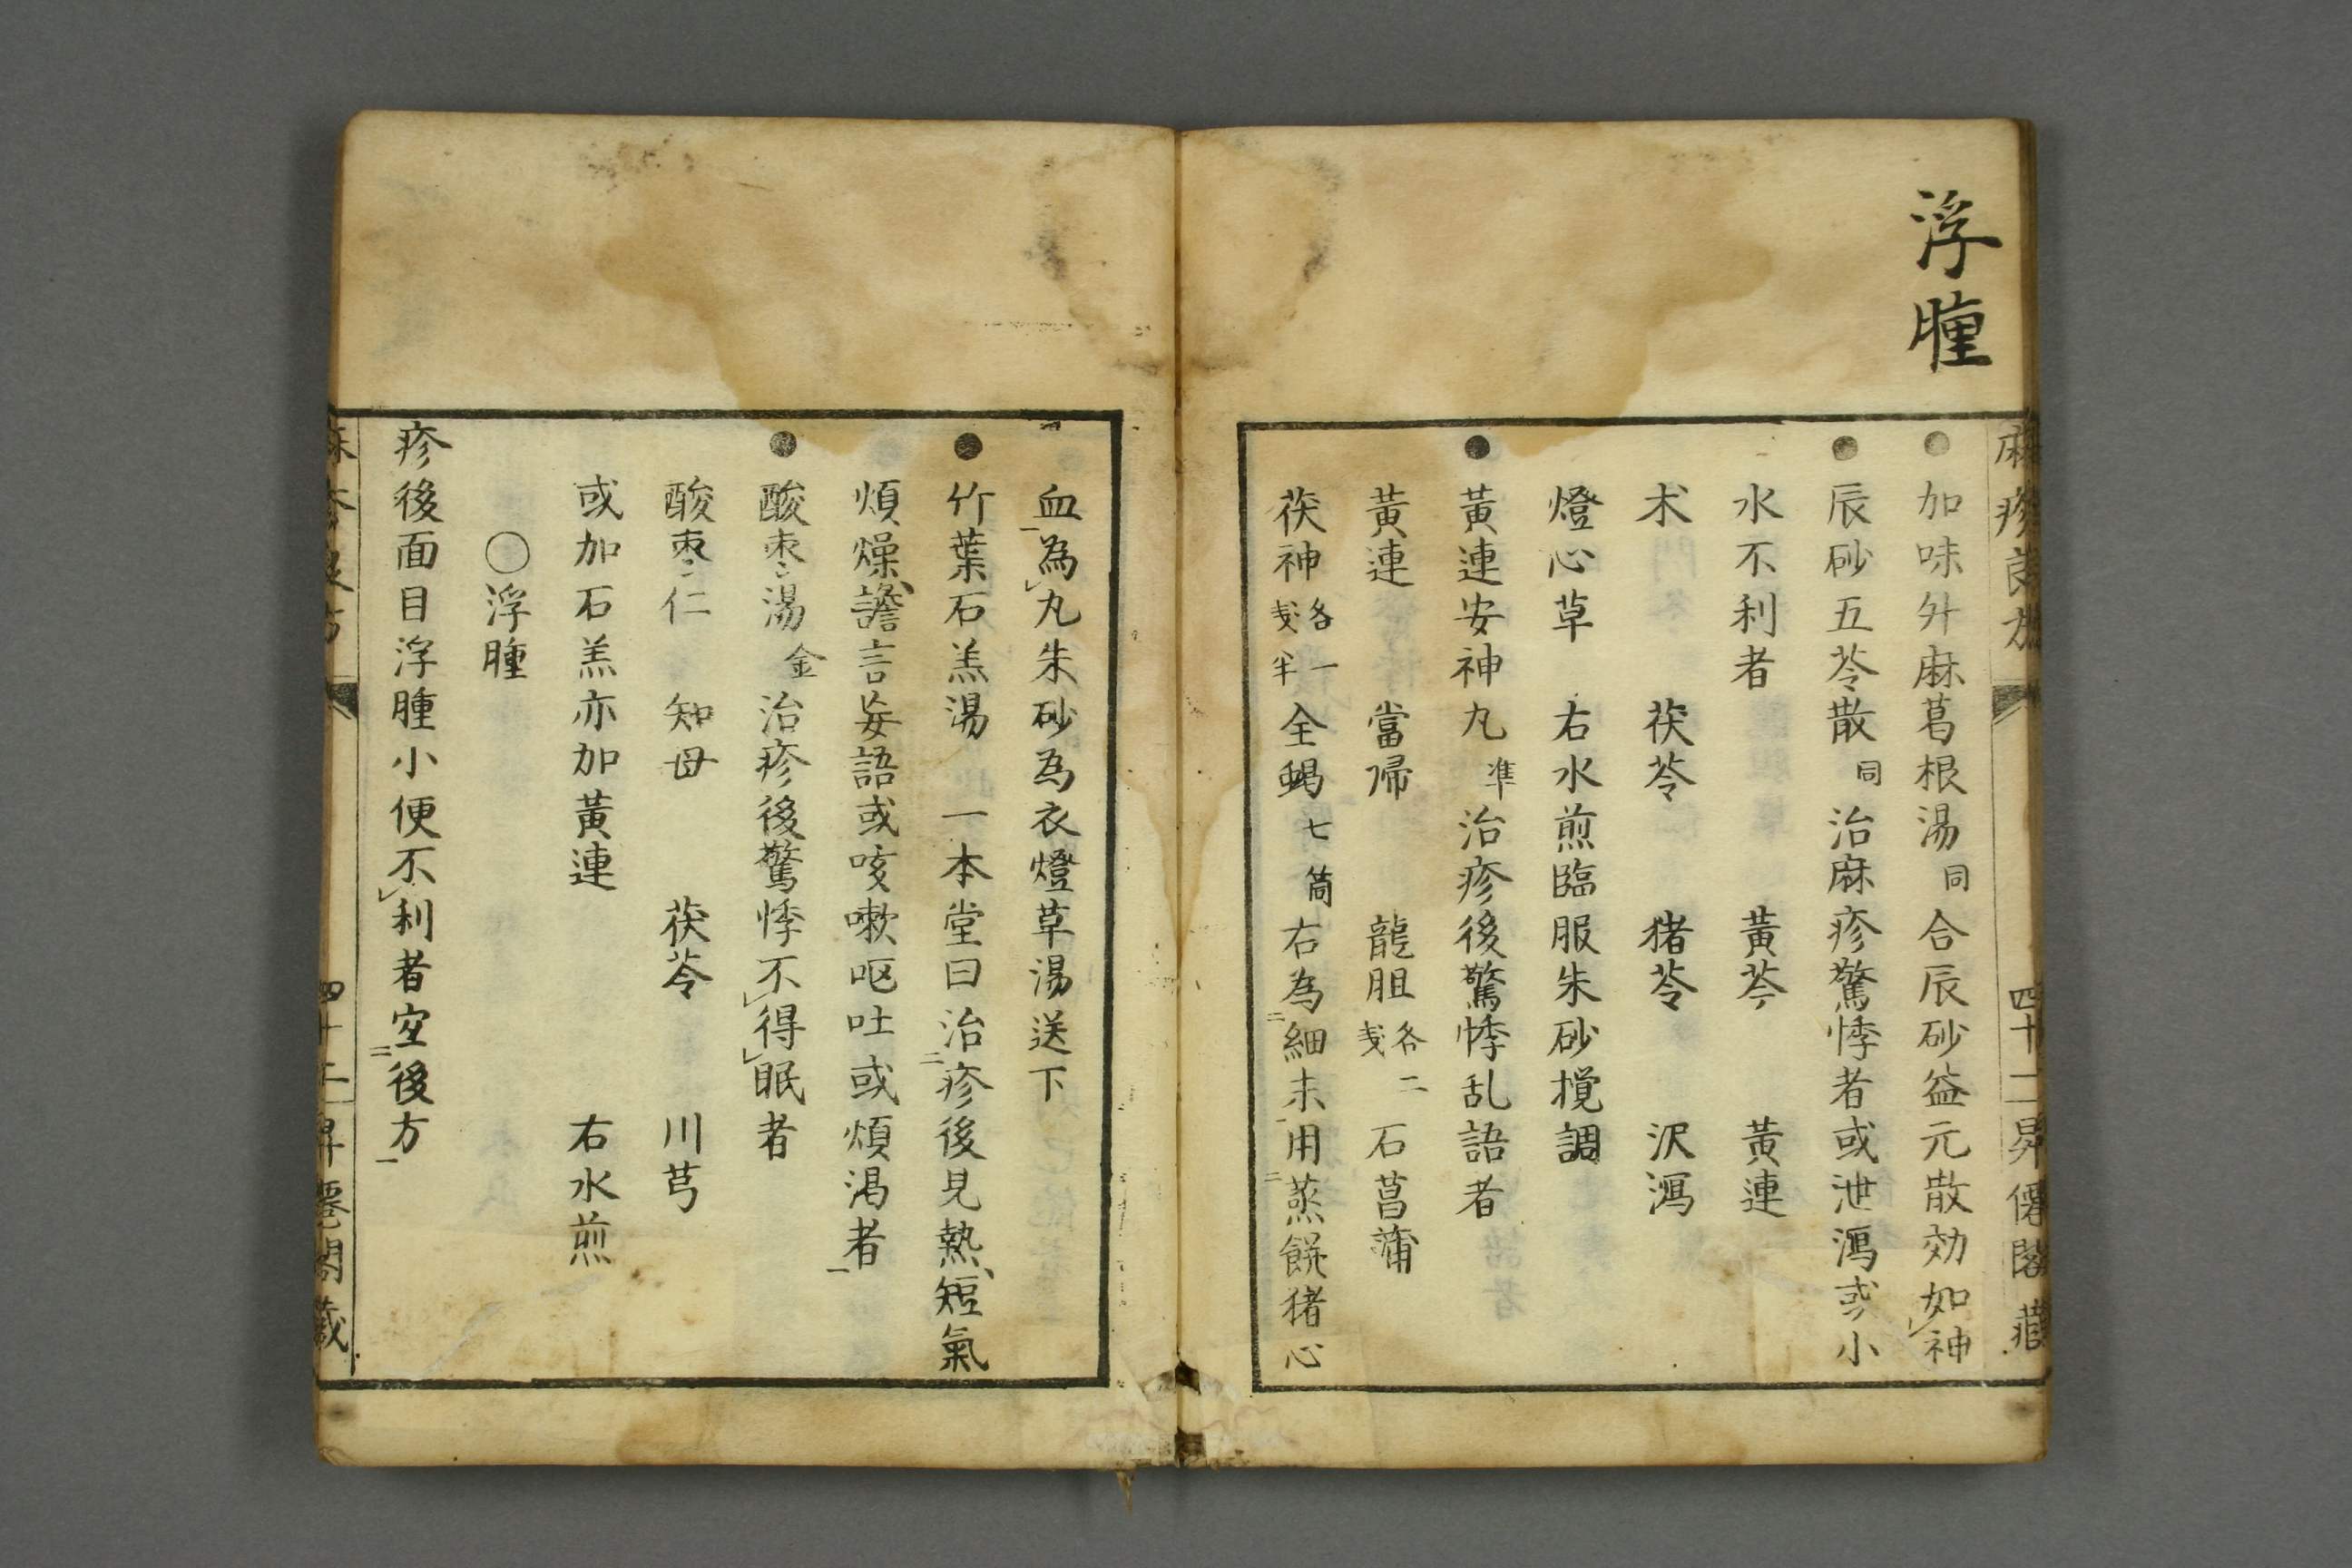 浮腫
麻疹良方
四十二
昇僊閣藏
●加味升麻葛根湯 同 合辰砂益元散効如神
●辰砂五苓散 同 治麻疹驚悸者或泄瀉或小
水不利者 黃芩 黃連
朮 茯苓 猪苓 沢瀉
燈心草 右水煎臨服朱砂攪調
●黃連安神丸 準 治疹後驚悸乱語者
黃連 當帰 龍胆 各二戔 石菖蒲
茯神 各一戔半 全蝎 七箇 右為細末用蒸餅猪心
血為丸朱砂為衣燈草湯送下
●竹葉石羔湯 一本堂曰治疹後見熱短氣
煩燥譫言妄語或咳嗽呕吐或煩渇者
●酸枣湯 金 治疹後驚悸不得眠者
酸枣仁 知母 茯苓 川芎
或加石羔亦加黃連 右水煎
○浮腫
疹後面目浮腫小便不利者宜後方
四十二
昇僊閣藏